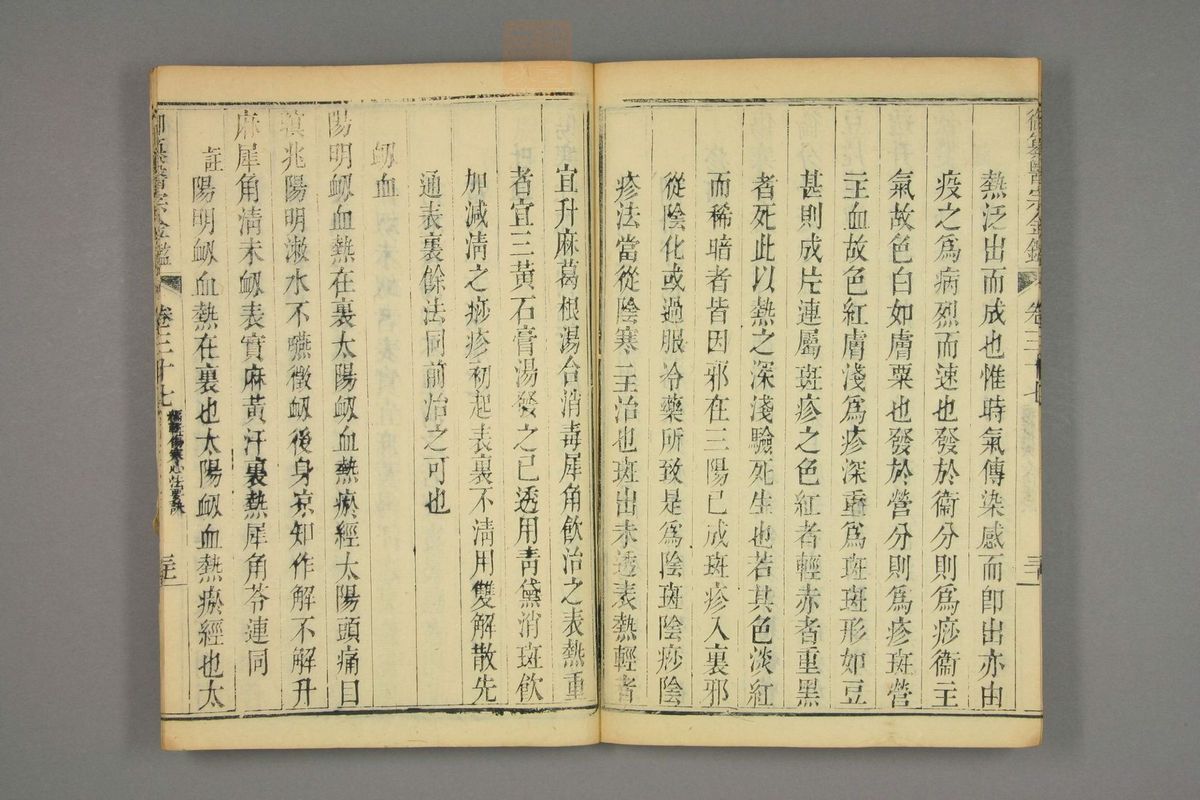 熱泛出而成也惟時氣傳染感而卽出亦由
疫之爲病烈而速也發於衞分則爲痧衞主
氣故色白如膚粟也發於營分則爲疹斑營
主血故色紅膚淺爲疹深重爲斑斑形如豆
甚則成片連屬斑疹之色紅者輕赤者重黑
者死此以熱之深淺驗死生也若其色淡紅
而稀暗者皆因邪在三陽已成斑疹入裏邪
從陰化或過服冷藥所致是爲陰斑陰痧陰
疹法當從陰寒主治也斑出未透表熱輕者
宜升麻葛根湯合消毒犀角飮治之表熱重
者宜三黃石膏湯發之已透用靑黛消斑飮
加減淸之痧疹初起表裏不淸用雙解散先
通表裏餘法同前治之可也
衂血
陽明衂血熱在裏太陽衂血熱瘀經太陽頭痛目
瞑兆陽明漱水不嚥徵衂後身凉知作解不解升
麻犀角淸未衂表實麻黃汗裏熱犀角芩連同
註陽明衂血熱在裏也太陽衂血熱瘀經也太
御纂醫宗金鑑 卷三十七